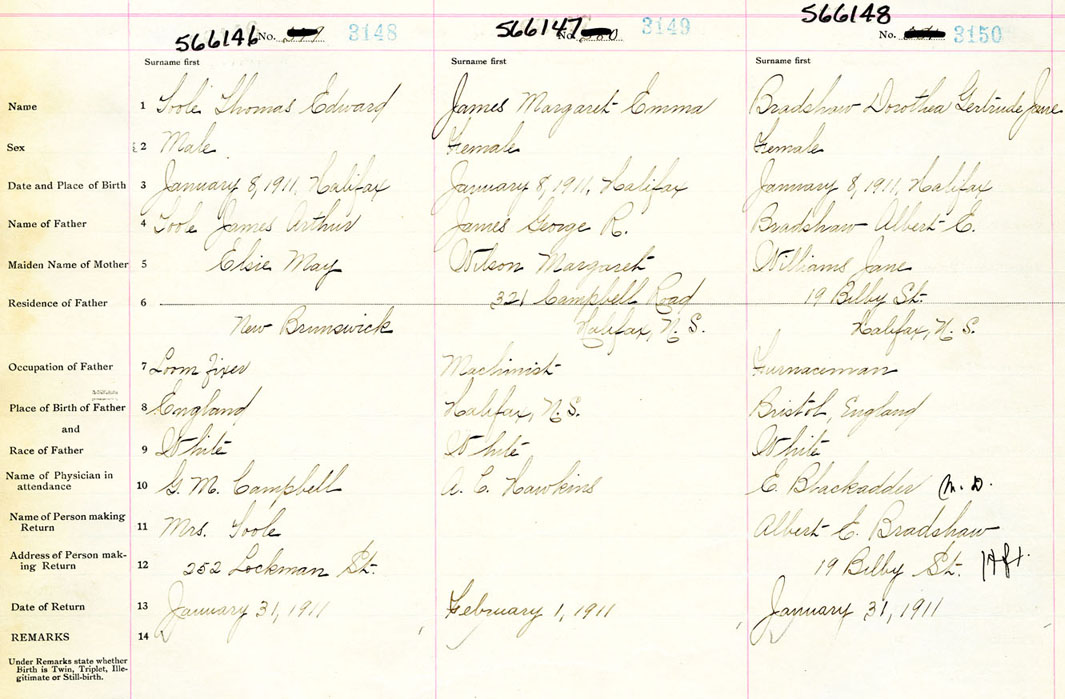 566146 No. 3148
566147 No. 3149
566148 No. 3150
Surname first Surname first Surname first
Name 1 Toole Thomas Edward James Margaret Emma Bradshaw Dorothea Gertrude Jane
Sex 2 Male Female Female
Date and Place of Birth 3 January 8, 1911, Halifax January 8, 1911, Halifax January 8, 1911, Halifax
Name of Father 4 Toole James Arthur James George R. Bradshaw Albert E.
Maiden Name of Mother 5 Elsie May Wilson Margaret Williams Jane
Residence of Father 6 321 Campbell Road 19 Bilby St.
New Brunswick Halifax, N. S. Halifax, N. S.
Occupation of Father 7 Loom fixer Machinist Furnaceman
Place of Birth of Father 8 England Halifax, N. S. Bristol, England
and
Race of Father 9 White White White
Name of Physician in
attendance 10 G. M. Campbell A. C. Hawkins E. Blackadder M. D.
Name of Person making
Return 11 Mrs. Toole Albert E. Bradshaw
Address of Person mak-
ing Return 12 252 Lockman St. 19 Bilby St. Hfx.
Date of Return 13 January 31, 1911 February 1, 1911 January 31, 1911
REMARKS 14
Under Remarks state whether
Birth is Twin, Triplet, Ille-
gitimate or Still-birth.